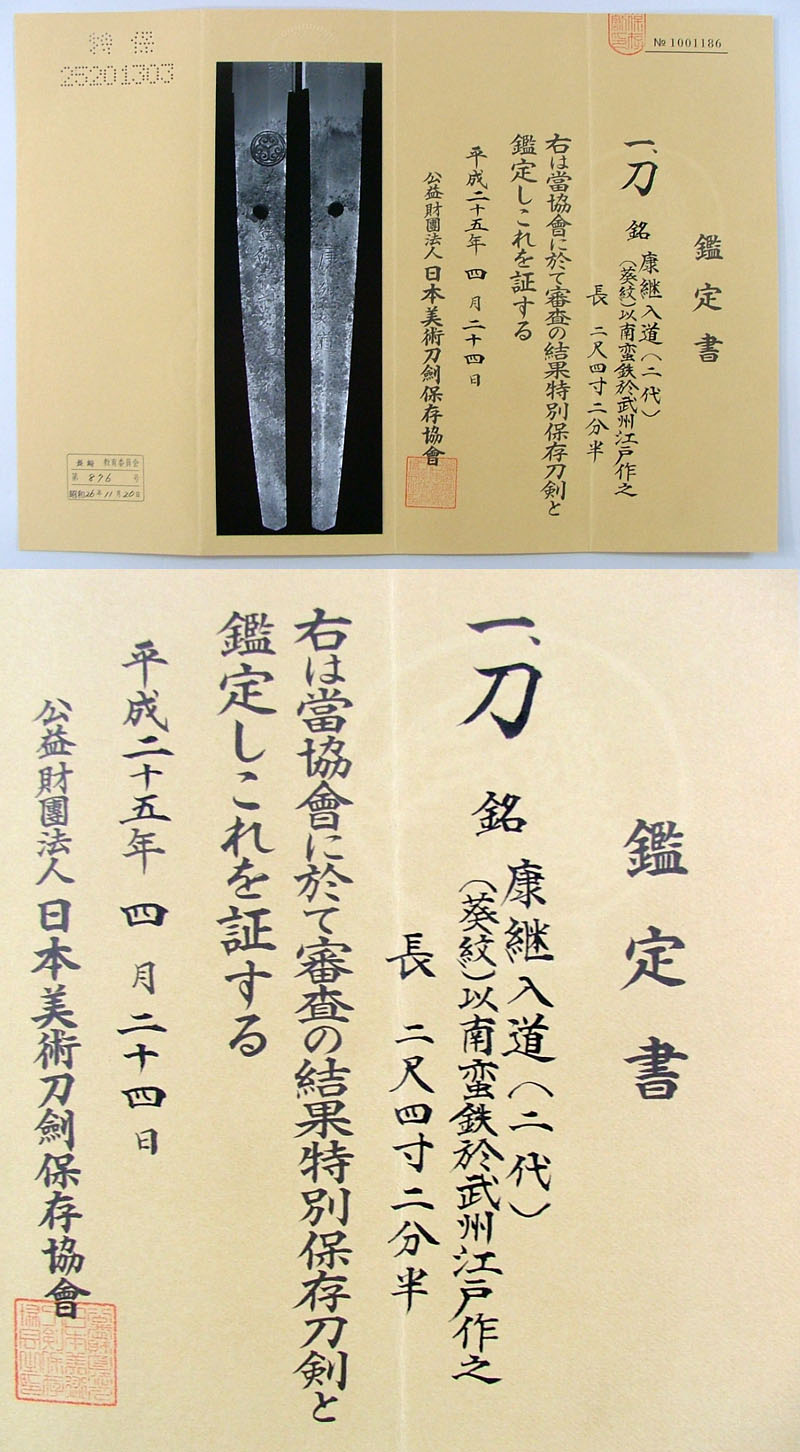 № 1001186
鑑定書
一、刀 銘 康継入道(二代)
(葵紋)以南蛮鉄於武州江戸作之
長 二尺四寸二分半
右は當協會に於て審査の結果特別保存刀剣と
鑑定しこれを証する
平成二十五年 四 月 二十四 日
公益財團法人 日本美術刀劍保存協會
特 保
25201303
長崎 教育委員会
第 896 号
昭和26年11月20日
鑑定書
一、刀 銘 康継入道(二代)
(葵紋)以南蛮鉄於武州江戸作之
長 二尺四寸二分半
右は當協會に於て審査の結果特別保存刀剣と
鑑定しこれを証する
平成二十五年 四 月 二十四 日
公益財團法人 日本美術刀劍保存協會